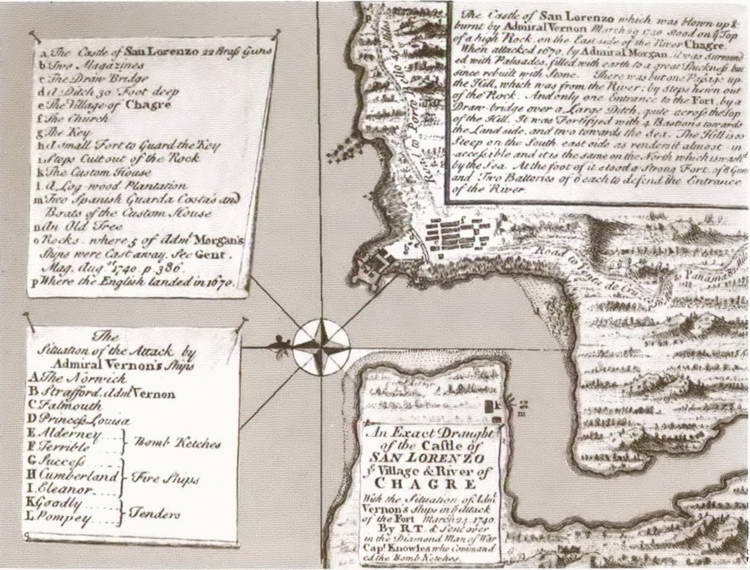 a The Castle of San Lorenzo 22 Brass Guns
b Two Magazines
c The Draw Bridge
d A Ditch 30 Foot deep
e The Village of Chagre
f The Church
g The Key
h A small Fort to Guard the Key
i Steps Cutt out of the Rock
k The Custom House
l A Log-wood Plantation
m Two Spanish Guarda Costas and
Boats of the Custom House
n An Old Tree
o Rocks where 5 of Adml. Morgan's
Ships were Cast away. See Gent.
Mag. Augst. 1740. p. 386.
p Where the English landed in 1670.
The Castle of San Lorenzo which was blown up &
burnt by Admiral Vernon March 29 1740 stood on ye Top
of a high Rock, on the East side of the River Chagre.
When attacked 1670, by Admiral Morgan, it was surround
ed with Palisades, filled with earth to a great thickness but
since rebuilt with Stone. There was but one Passage up
the Hill, which was from the River; by steps hewn out
of the Rock. And only one Entrance to the Fort, by a
Draw bridge over a Large Ditch, quite across the top
of the Hill. It was Fortifyed with 4 Bastions towards
the Land side, and two towards the Sea. The Hill is so
Steep on the South east side as render it almost in
accessible and it is the same on the North which is washt
by the Sea. At the foot of it stood a Strong Fort, of 8 Guns
and Two Batteries of 6 each to defend the Entrance
of the River
Road to Porto Bello
Road to Venta de Cruzes
Panama
The
Situation of the Attack by
Admiral Vernon's Ships
A The Norwich
B Strafford Adml. Vernon
C Falmouth
D Princess Louisa
E Alderney
F Terrible
G Success
Bomb Ketches
H Cumberland
I Eleanor
Fire Ships
K Goodly
L Pompey
Tenders
k
m
An Exact Draught
of the Castle of
SAN LORENZO
ye Village & River of
CHAGRE
With the Situation of Adml.
Vernon's Ships in ye Attack
of the Fort March 24. 1740.
By R.T. & Sent over
in the Diamond Man of War
Capt. Knowles who Command
ed the Bomb Ketches.